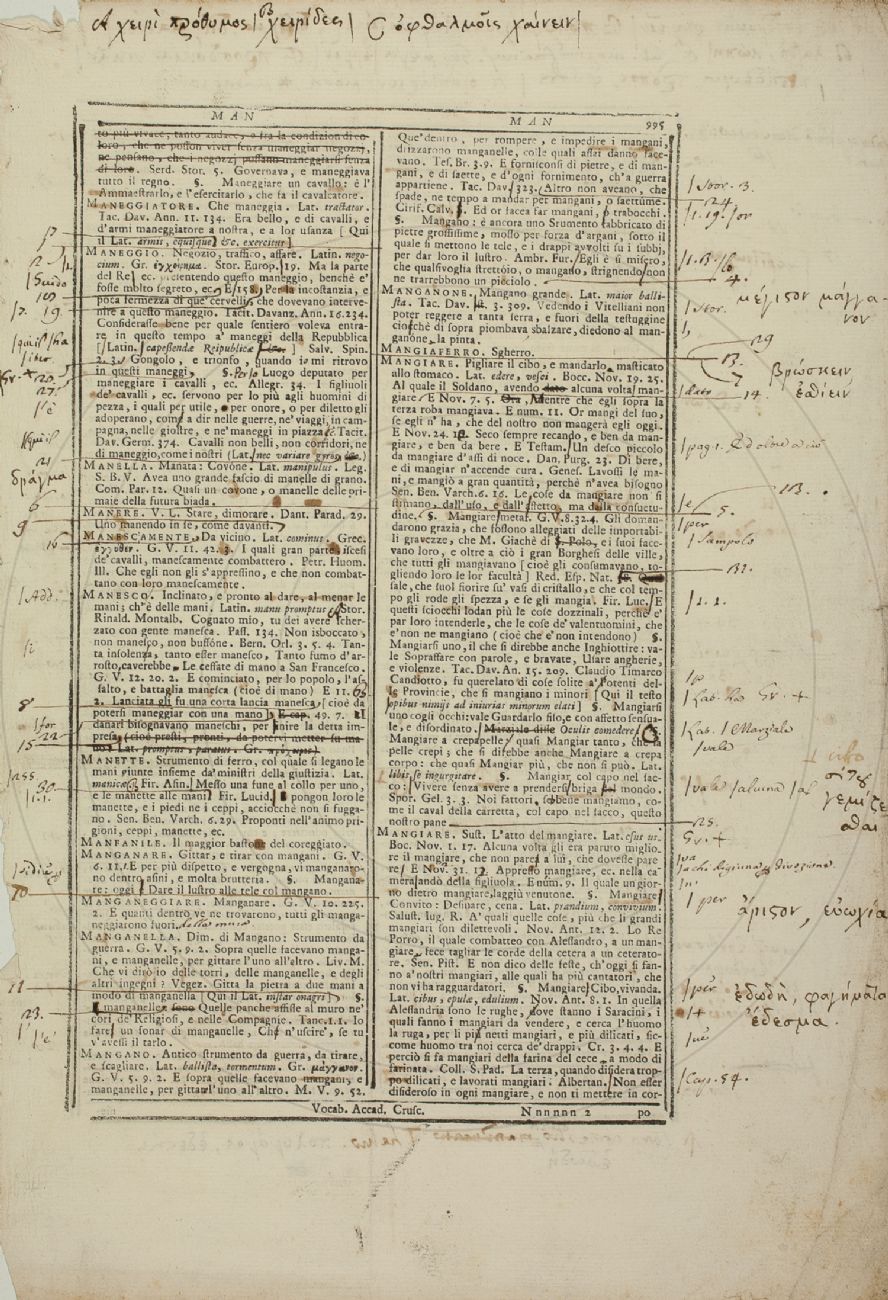 χειρὶ πρόθυμος χειρίδες ὀφθαλμοῖς χαίνειν
MAN MAN 995
to più vivace, tanto audace, o fra la condizion di co-
loro, che ne posson viver senza maneggiar negozzj,
ne pensano, che i negozzj possano maneggiarsi senza
di loro. Serd. Stor. 5. Governava, e maneggiava
tutto il regno. §. Maneggiare un cavallo: è l'
Ammaestrarlo, e l'esercitarlo, che fa il cavalcatore.
MANEGGIATORE. Che maneggia. Lat. tractator.
Tac. Dav. Ann. 11. 134. Era bello, e di cavalli, e
d'armi maneggiatore a nostra, e a lor usanza [Qui
il Lat. armis, equisque &c. exercitus]
MANEGGIO. Negozio, traffico, affare. Latin. nego-
cium. Gr. ἐγχείρημα. Stor. Europ. 19. Ma la parte
del Re ec. pretentendo questo maneggio, benchè e'
fosse molto segreto, ec. E 158. Per la incostanzia, e
poca fermezza di que' cervelli, che dovevano interve-
nire a questo maneggio. Tacit. Davanz. Ann. 16. 234.
Considerasse bene per quale sentiero voleva entra-
re in questo tempo a' maneggi della Repubblica
[Latin. capessendæ Reipublicæ] Salv. Spin.
2. 3. Gongolo, e trionfo, quando io mi ritrovo
in questi maneggi. §. Per lo Luogo deputato per
maneggiare i cavalli, ec. Allegr. 34. I figliuoli
de' cavalli, ec. servono per lo più agli huomini di
pezza, i quali per utile, o per onore, o per diletto gli
adoperano, come a dir nelle guerre, ne' viaggi, in cam-
pagna, nelle giostre, e ne' maneggi in piazza. Tacit.
Dav. Germ. 374. Cavalli non belli, non corridori, ne
di maneggio, come i nostri (Lat. nec variare gyros)
MANELLA. Manata: Covone. Lat. manipulus. Leg.
S. B. V. Avea uno grande fascio di manelle di grano.
Com. Par. 12. Quasi un covone, o manelle delle pri-
maie della futura biada.
MANERE. V. L. Stare, dimorare. Dant. Parad. 29.
Uno manendo in se, come davanti.
MANESCAMENTE. Da vicino. Lat. cominus. Grec.
ἐγγύθεν. G. V. 11. 42. 3. I quali gran parte iscesi
de' cavalli, manescamente combattero. Petr. Huom.
Ill. Che egli non gli s'appressino, e che non combat-
tano con loro manescamente.
MANESCO. Inclinato, e pronto al dare, al menar le
mani; ch'è delle mani. Latin. manu promptus Stor.
Rinald. Montalb. Cognato mio, tu dei avere scher-
zato con gente manesca. Pass. 134. Non isboccato,
non manesco, non buffone. Bern. Orl. 3. 5. 4. Tan-
ta insolenza, tanto esser manesco, Tanto fumo d'ar-
rosto, caverebbe Le ceffate di mano a San Francesco.
G. V. 12. 20. 2. E cominciato, per lo popolo, l'as-
salto, e battaglia manesca (cioè di mano) E 11. 63
2. Lanciata gli fu una corta lancia manesca, [cioè da
potersi maneggiar con una mano] E cap. 49. 7. I
danari bisognavano maneschi, per finire la detta im-
presa, (cioè presti, pronti, da potervi metter su ma-
no) Lat. promptus, paratus. Gr.
MANETTE. Strumento di ferro, col quale si legano le
mani giunte insieme da' ministri della giustizia. Lat.
manicæ. Fir. Asin. Messo una fune al collo per uno,
e le manette alle mani Fir. Lucid. I pongon loro le
manette, e i piedi ne i ceppi, acciocchè non si fugga-
no. Sen. Ben. Varch. 6. 29. Proponti nell'animo pri-
gioni, ceppi, manette, ec.
MANFANILE. Il maggior bastone del coreggiato.
MANGANARE. Gittar, e tirar con mangani. G. V.
6. 11. E per più dispetto, e vergogna, vi manganaro-
no dentro asini, e molta bruttura. §. Mangana-
re: oggi Dare il lustro alle tele col mangano.
MANGANEGGIARE. Manganare. G. V. 10. 225.
2. E quanti dentro ve ne trovarono, tutti gli manga-
neggiarono fuori.
MANGANELLA. Dim. di Mangano: Strumento da
guerra. G. V. 5. 9. 2. Sopra quelle facevano manga-
ni, e manganelle, per gittare l'uno all'altro. Liv. M.
Che vi dirò io delle torri, delle manganelle, e degli
altri ingegni? Vegez. Gitta la pietra a due mani a
modo di manganella [Qui il Lat. instar onagri] §.
manganelle sono Quelle panche affisse al muro ne'
cori de' Religiosi, e nelle Compagnie. Tanc. 1. 1. Io
fare' un sonar di manganelle, Che n'uscire', se tu
v'avessi il tarlo.
MANGANO. Antico strumento da guerra, da tirare,
e scagliare. Lat. ballista, tormentum. Gr. μάγγανον.
G. V. 5. 9. 2. E sopra quelle facevano mangani, e
manganelle, per gittare l'uno all'altro. M. V. 9. 52.
Que' dentro, per rompere, e impedire i mangani,
dirizzarono manganelle, colle quali assai danno face-
vano. Tes. Br. 3. 9. E fornisconsi di pietre, e di man-
gani, e di saette, e d'ogni fornimento, ch'a guerra
appartiene. Tac. Dav. 323. Altro non aveano, che
spade, ne tempo a mandar per mangani, o saettume.
Cirif. Calv. Ed or facea far mangani, or trabocchi.
§. Mangano: è ancora uno Strumento fabbricato di
pietre grossissime, mosso per forza d'argani, sotto il
quale si mettono le tele, e i drappi avvolti su i subbj,
per dar loro il lustro. Ambr. Fur. Egli è si misero,
che qualsivoglia strettoio, o mangano, strignendo, non
ne trarrebbono un picciolo.
MANGANONE. Mangano grande. Lat. maior balli-
sta. Tac. Dav. 3. 309. Vedendo i Vitelliani non
poter reggere a tanta ferra, e fuori della testuggine
ciocchè di sopra piombava sbalzare, diedono al man-
ganone la pinta.
MANGIAFERRO. Sgherro.
MANGIARE. Pigliare il cibo, e mandarlo masticato
allo stomaco. Lat. edere, vesci. Bocc. Nov. 19. 25.
Al quale il Soldano, avendo alcuna volta man-
giare E Nov. 7. 5. Ora, Mentre che egli sopra la
terza roba mangiava. E num. 11. Or mangi del suo,
se egli n'ha, che del nostro non mangerà egli oggi.
E Nov. 24. Seco sempre recando, e ben da man-
giare, e ben da bere. E Testam. Un desco piccolo
da mangiare d'assi di noce. Dan. Purg. 23. Di bere,
e di mangiar n'accende cura. Genes. Lavossi le ma-
ni, e mangiò a gran quantità, perchè n'avea bisogno
Sen. Ben. Varch. 6. 16. Le cose da mangiare non si
stimano dall'uso, e dall'effetto, ma dalla consuetu-
dine. §. Mangiare metaf. G. V. 8. 32. 4. Gli doman-
darono grazia, che fossono alleggiati delle importabi-
li gravezze, che M. Giachè di S. Polo, e i suoi face-
vano loro, e oltre a ciò i gran Borghesi delle ville,
che tutti gli mangiavano [cioè gli consumavano, to-
gliendo loro le lor facultà] Red. Esp. Nat.
sale, che suol fiorire su' vasi di cristallo, e che col tem-
po gli rode gli spezza, e se gli mangia. Fir. Luc. E
questi sciocchi lodan più le cose dozzinali, perchè e'
par loro intenderle, che le cose de' valentuomini, che
e' non ne mangiano (cioè che e' non intendono) §.
Mangiarsi uno, il che si direbbe anche Inghiottire: va-
le Sopraffare con parole, e bravate, Usare angherie,
e violenze. Tac. Dav. An. 15. 209. Claudio Timarco
Candiotto, fu querelato di cose solite a' Potenti del-
le Provincie, che si mangiano i minori [Qui il testo
opibus nimijs ad iniurias minorum elati] §. Mangiarsi
uno cogli occhi: vale Guardarlo fiso, e con affetto sensua-
le, e disordinato. Marziale disse Oculis comedere. §.
Mangiare a crepapelle: quasi Mangiar tanto, che la
pelle crepi; che si direbbe anche Mangiare a crepa
corpo: che quasi Mangiar più, che non si può. Lat.
libis se ingurgitare. §. Mangiar col capo nel sac-
co: Vivere senza avere a prendersi briga nel mondo.
Spor. Gel. 3. 3. Noi fattori, sebbene mangiamo, co-
me il caval della carretta, col capo nel sacco, questo
nostro pane
MANGIARE. Sust. L'atto del mangiare. Lat. esus us.
Bocc. Nov. 1. 17. Alcuna volta gli era paruto miglio-
re il mangiare, che non pareva a lui, che dovesse pare-
re E Nov. 31. 12. Appresso mangiare, ec. nella ca-
mera andò della figliuola. E num. 9. Il quale un gior-
no dietro mangiare, laggiù venutone. §. Mangiare
Convito: Desinare, cena. Lat. prandium, convivium.
Salust. Iug. R. A' quali quelle cose, più che li grandi
mangiari son dilettevoli. Nov. Ant. 12. 2. Lo Re
Porro, il quale combatteo con Alessandro, a un man-
giare, fece tagliar le corde della cetera a un ceterato-
re. Sen. Pist. E non dico delle feste, ch'oggi si fan-
no a' nostri mangiari, alle quali ha più cantatori, che
non vi ha ragguardatori. §. Mangiare Cibo, vivanda.
Lat. cibus, epulæ, edulium. Nov. Ant. 8. 1. In quella
Alessandria sono le rughe, dove stanno i Saracini, i
quali fanno i mangiari da vendere, e cerca l'huomo
la ruga, per li più netti mangiari, e più dilicati, sic-
come huomo tra noi cerca de' drappi. Cr. 3. 4. 4. E
perciò si fa mangiari della farina del cece a modo di
farinata. Coll. S. Pad. La terza, quando disidera trop-
po dilicati, e lavorati mangiari. Albertan. Non esser
disideroso in ogni mangiare, e non ti mettere in cor-
Vocab. Accad. Crusc. Nnnnnn 2 po
δράγμα
Stor. 3.
μέγιστον μάγγα-
νον
βρώσκειν
ἐσθίειν
ἄριστον, εὐωχία
ἐδωδὴ, φαγήματα
ἔδεσμα.
Cap. 54.